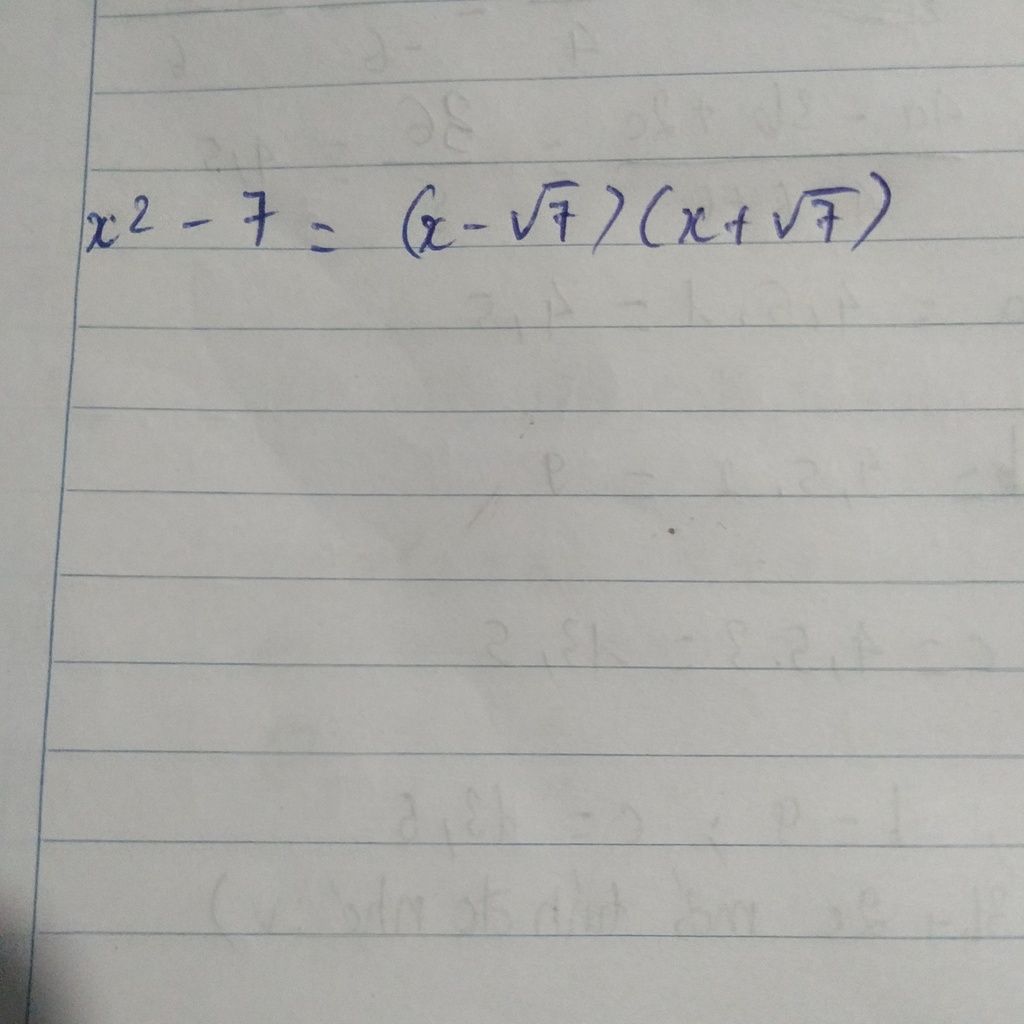 x² - 7 = (x - √7)(x + √7)